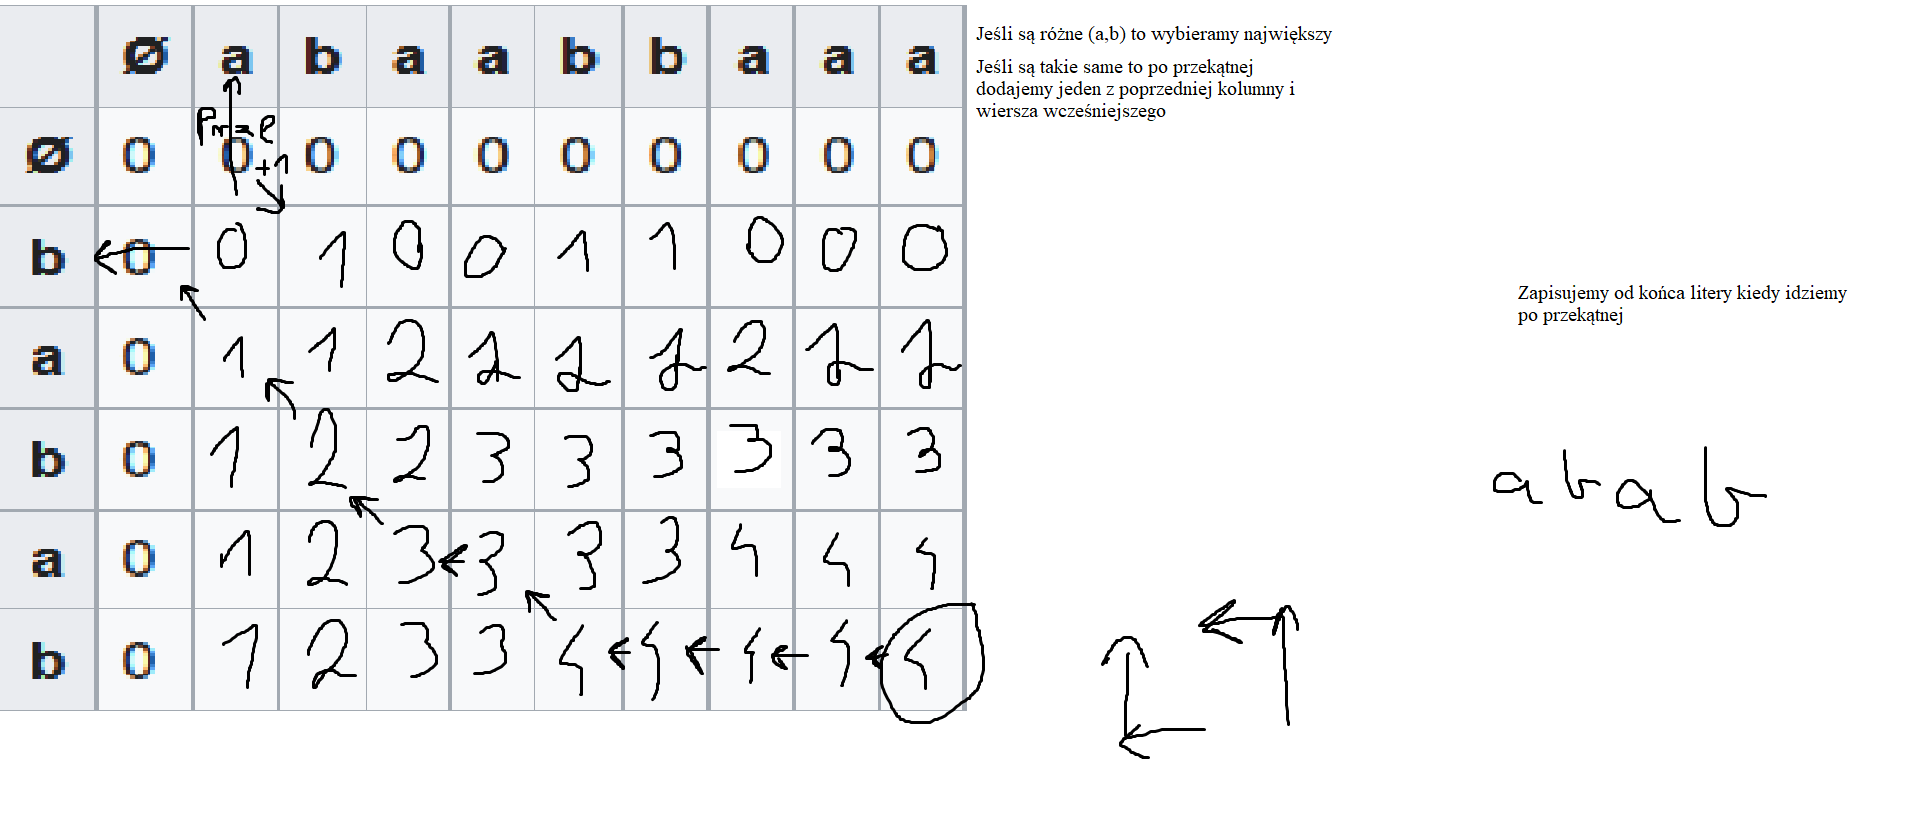 Ø a b a a b b a a a
Ø 0 0 0 0 0 0 0 0 0 0
+1
b 0 0 1 0 0 1 1 0 0 0
a 0 1 1 2 2 2 2 2 2 2
b 0 1 2 2 3 3 3 3 3 3
a 0 1 2 3 3 3 3 4 4 4
b 0 1 2 3 3 4 4 4 4 4
Jeśli są różne (a,b) to wybieramy największy
Jeśli są takie same to po przekątnej
dodajemy jeden z poprzedniej kolumny i
wiersza wcześniejszego
Zapisujemy od końca litery kiedy idziemy
po przekątnej
a b a b